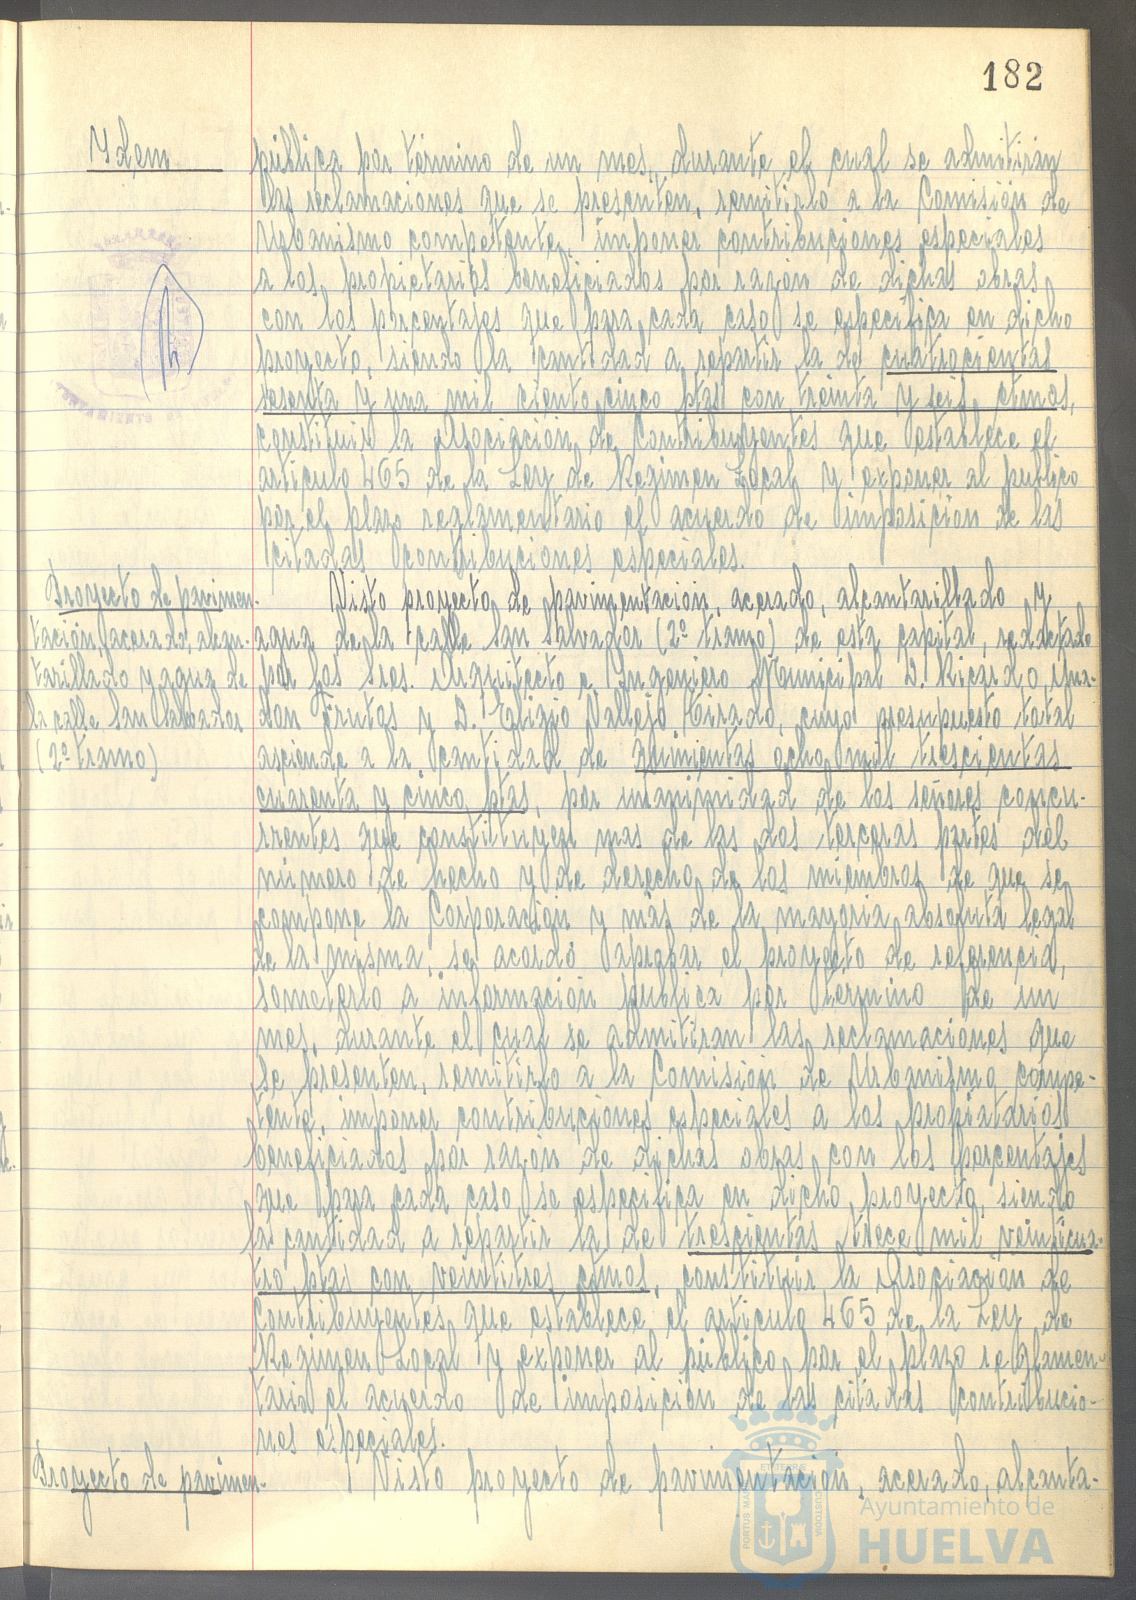 182
Idem
pública por término de un mes, durante el cual se admitirán
las reclamaciones que se presenten, remitirlo a la Comisión de
Urbanismo competente, imponer contribuciones especiales
a los propietarios beneficiados por razón de dichas obras
con los porcentajes que para cada caso se especifica en dicho
proyecto, siendo la cantidad a repartir la de cuatrocientas
sesenta y una mil ciento cinco ptas con treinta y seis ctmos,
constituir la Asociación de Contribuyentes que establece el
artículo 465 de la Ley de Regimen Local y exponer al publico
por el plazo reglamentario el acuerdo de imposición de las
citadas contribuciones especiales.
Proyecto de pavimen-
tación, acerado, alcan-
tarillado y agua de
la calle San Salvador
(2º tramo)
Visto proyecto de pavimentación, acerado, alcantarillado y
agua de la calle San Salvador (2º tramo) de esta capital, redactado
por los Sres. Arquitecto e Ingeniero Municipal D. Ricardo Ana-
don Frutos y D. Eligio Vallejo Tirado, cuyo presupuesto total
asciende a la cantidad de quinientas ocho mil trescientas
cuarenta y cinco ptas, por unanimidad de los señores concu-
rrentes que constituyen mas de las dos terceras partes del
número de hecho y de derecho de los miembros de que se
compone la Corporación y más de la mayoria absoluta legal
de la misma, se acordó aprobar el proyecto de referencia,
someterlo a información publica por termino de un
mes, durante el cual se admitiran las reclamaciones que
se presenten, remitirlo a la Comisión de Urbanismo compe-
tente, imponer contribuciones especiales a los propietarios
beneficiados por razón de dichas obras con los porcentajes
que para cada caso se especifica en dicho proyecto, siendo
la cantidad a repartir la de trescientas trece mil veinticua-
tro ptas con veintitres ctmos, constituir la Asociación de
Contribuyentes que establece el artículo 465 de la Ley de
Regimen Local y exponer al público por el plazo reglamen-
tario el acuerdo de imposición de las citadas contribucio-
nes especiales.
Proyecto de pavimen-
Visto proyecto de pavimentación, acerado, alcanta-
PORTUS MARIS
CUSTODIA
Ayuntamiento de
HUELVA